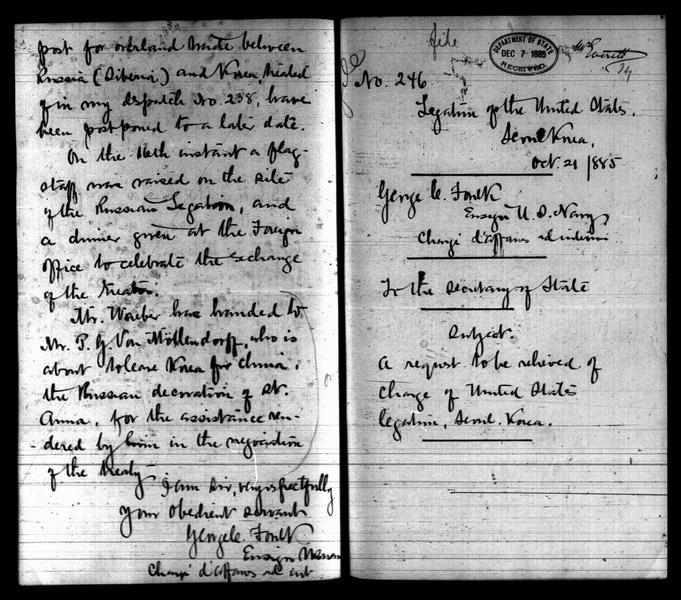 post for overland trade between
Russia (Siberia) and Korea, treated
of in my dispatch No. 238, have
been postponed to a later date.
On the 16th instant a flag-
staff was raised on the site
of the Russian Legation, and
a dinner given at the Foreign
Office to celebrate the exchange
of the treaties.
Mr. Waeber has handed to
Mr. P. G. Von Möllendorff, who is
about to leave Korea for China,
the Russian decoration of St.
Anna, for the assistance ren-
-dered by him in the negotiation
of the treaty.
I am Sir, very respectfully
Your obedient servant
George C. Foulk
Ensign U.S. Navy
Chargé d'affaires ad int
file
DEPARTMENT OF STATE
DEC 7 1885
RECEIVED
Mr Everett
No. 246
Legation of the United States,
Seoul Korea,
Oct. 21 1885
George C. Foulk
Ensign U. S. Navy
Chargé d'affaires ad interim
To the Secretary of State
Subject.
A request to be relieved of
charge of United States
Legation, Seoul, Korea.